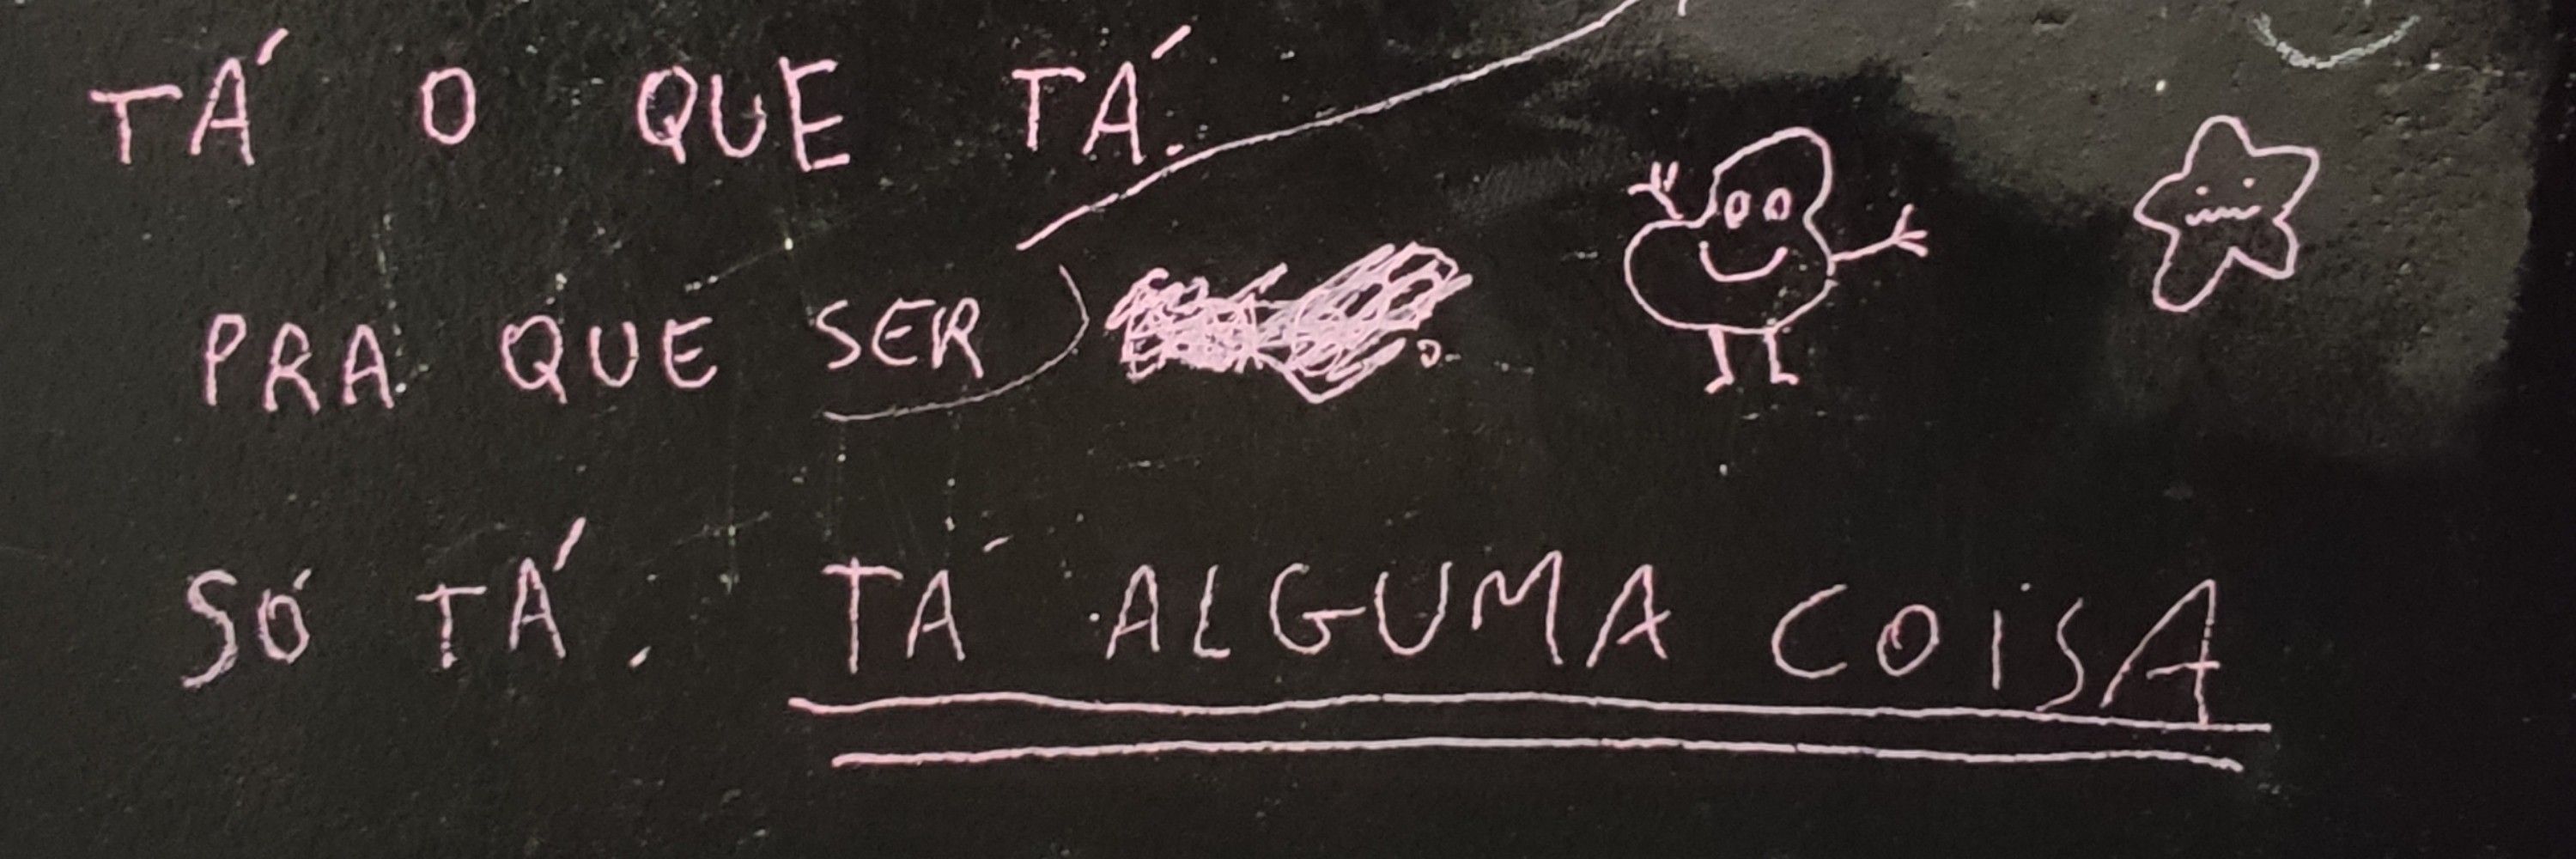 TÁ O QUE TÁ.
PRA QUE SER
SÓ TÁ. TÁ ALGUMA COISA